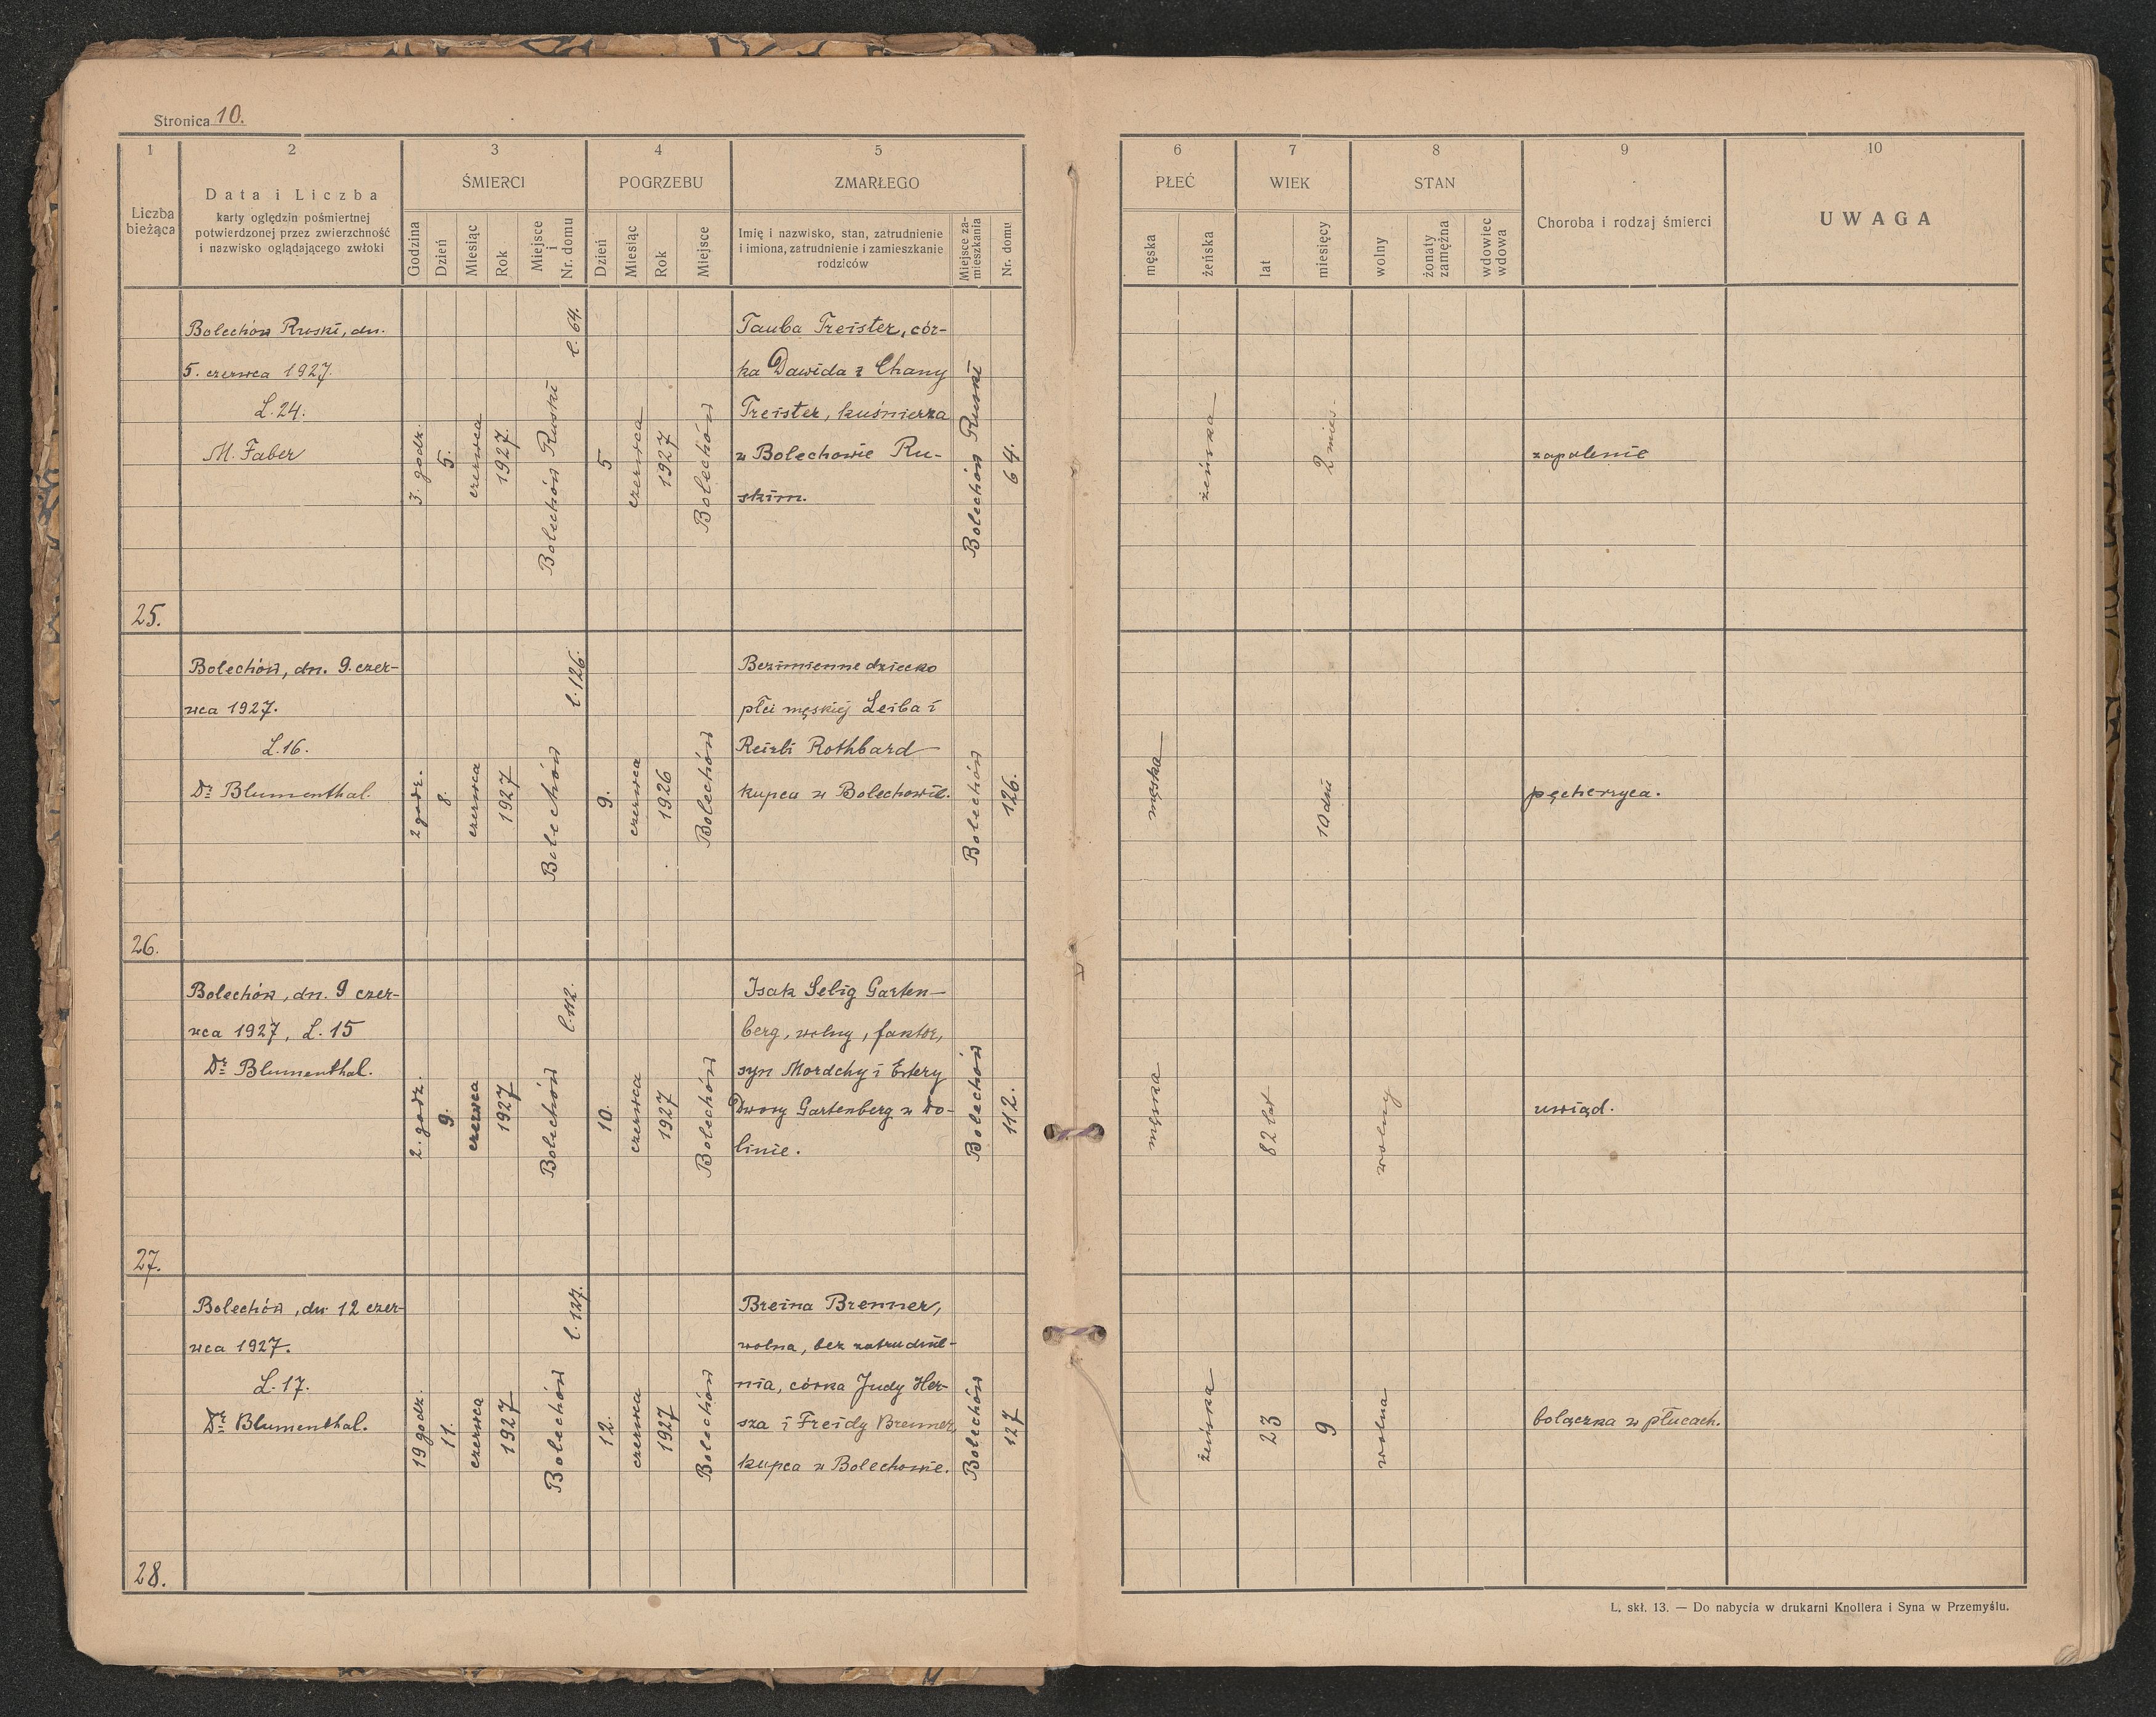 Stronica 10.
1
2
3
4
5
6
7
8
9
10
Liczba bieżąca
Data i Liczba
karty oględzin pośmiertnej
potwierdzonej przez zwierzchność
i nazwisko oglądającego zwłoki
ŚMIERCI
Godzina
Dzień
Miesiąc
Rok
Miejsce i Nr. domu
POGRZEBU
Dzień
Miesiąc
Rok
Miejsce
ZMARŁEGO
Imię i nazwisko, stan, zatrudnienie
i imiona, zatrudnienie i zamieszkanie
rodziców
Miejsce zamieszkania
Nr. domu
PŁEĆ
męska
żeńska
WIEK
lat
miesięcy
STAN
wolny
żonaty zamężna
wdowiec wdowa
Choroba i rodzaj śmierci
UWAGA
25.
Bolechów Ruski, dn.
5. czerwca 1927.
L. 24.
M. Faber
3. godz.
5.
czerwca
1927.
Bolechów Ruski l. 64.
5
czerwca
1927
Bolechów
Tauba Treister, cór-
ka Dawida i Chany
Treister, kuśnierza
w Bolechowie Ru-
skim.
Bolechów Ruski
64.
żeńska
2 mies.
zapalenie
26.
Bolechów, dn. 9. czer-
wca 1927.
L. 16.
Dr Blumenthal.
2 godz.
8.
czerwca
1927
Bolechów l. 126.
9.
czerwca
1926
Bolechów
Bezimienne dziecko
płci męskiej Leiba i
Reizli Rothbard
kupca w Bolechowie.
Bolechów
126.
męska
10 dni
pęcherzyca.
27.
Bolechów, dn. 9 czer-
wca 1927, L. 15
Dr Blumenthal.
2. godz.
9.
czerwca
1927
Bolechów l. 112.
10.
czerwca
1927
Bolechów
Isak Selig Garten-
berg, wolny, faktor,
syn Mordchy i Estery
Dwory Gartenberg w Do-
linie.
Bolechów
112.
męska
82 lat
wolny
uwiąd.
28.
Bolechów, dn 12 czer-
wca 1927.
L. 17.
Dr Blumenthal.
19 godz.
11.
czerwca
1927
Bolechów l. 127.
12.
czerwca
1927
Bolechów
Breina Brenner,
wolna, bez zatrudnie-
nia, córka Judy Her-
sza i Freidy Brenner,
kupca w Bolechowie.
Bolechów
127
żeńska
23
9
wolna
bolączka w płucach.
L. skł. 13. — Do nabycia w drukarni Knollera i Syna w Przemyślu.